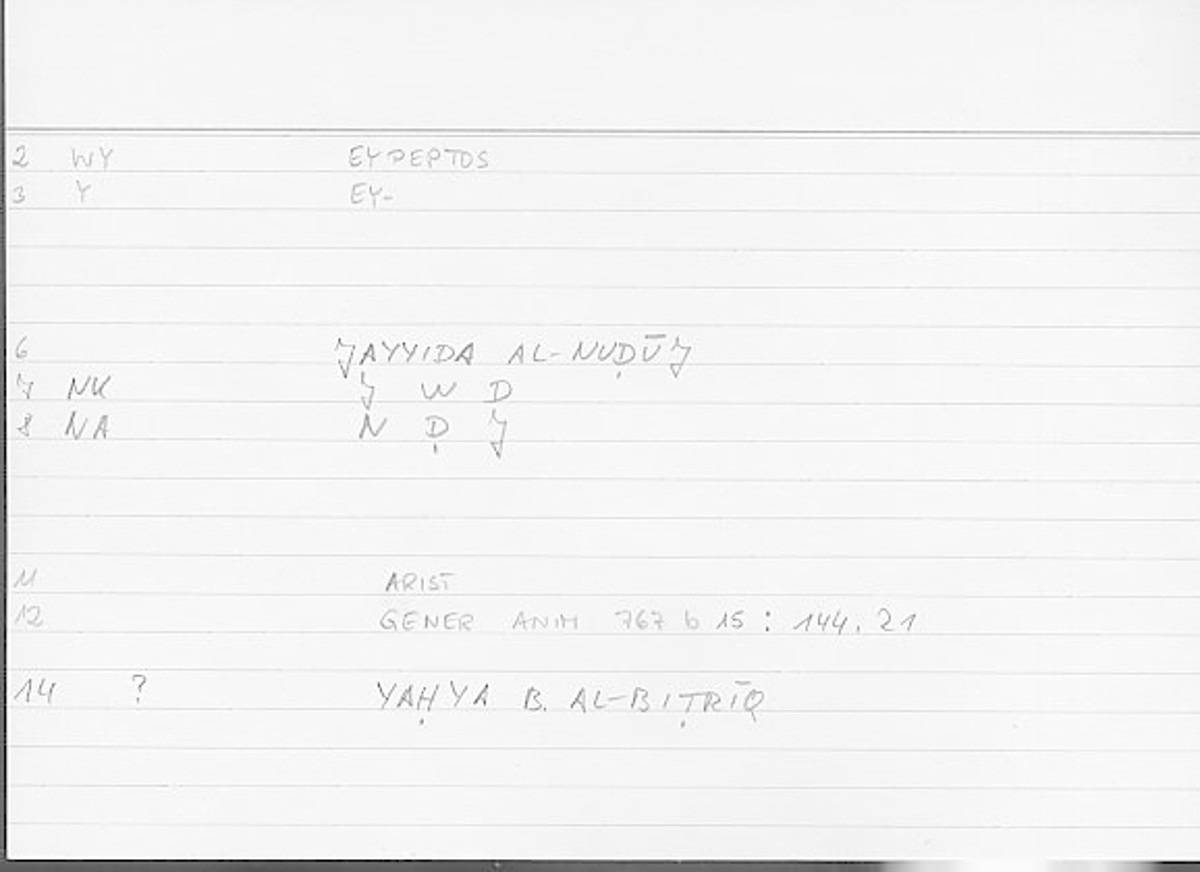 2 WY EYPEPTOS
3 Y EY-
6 JAYYIDA AL-NUḌŪJ
7 NK J W D
8 NA N Ḍ J
11 ARIST
12 GENER ANIM 767 b 15 : 144. 21
14 ? YAḤYA B. AL-BIṬRĪQ